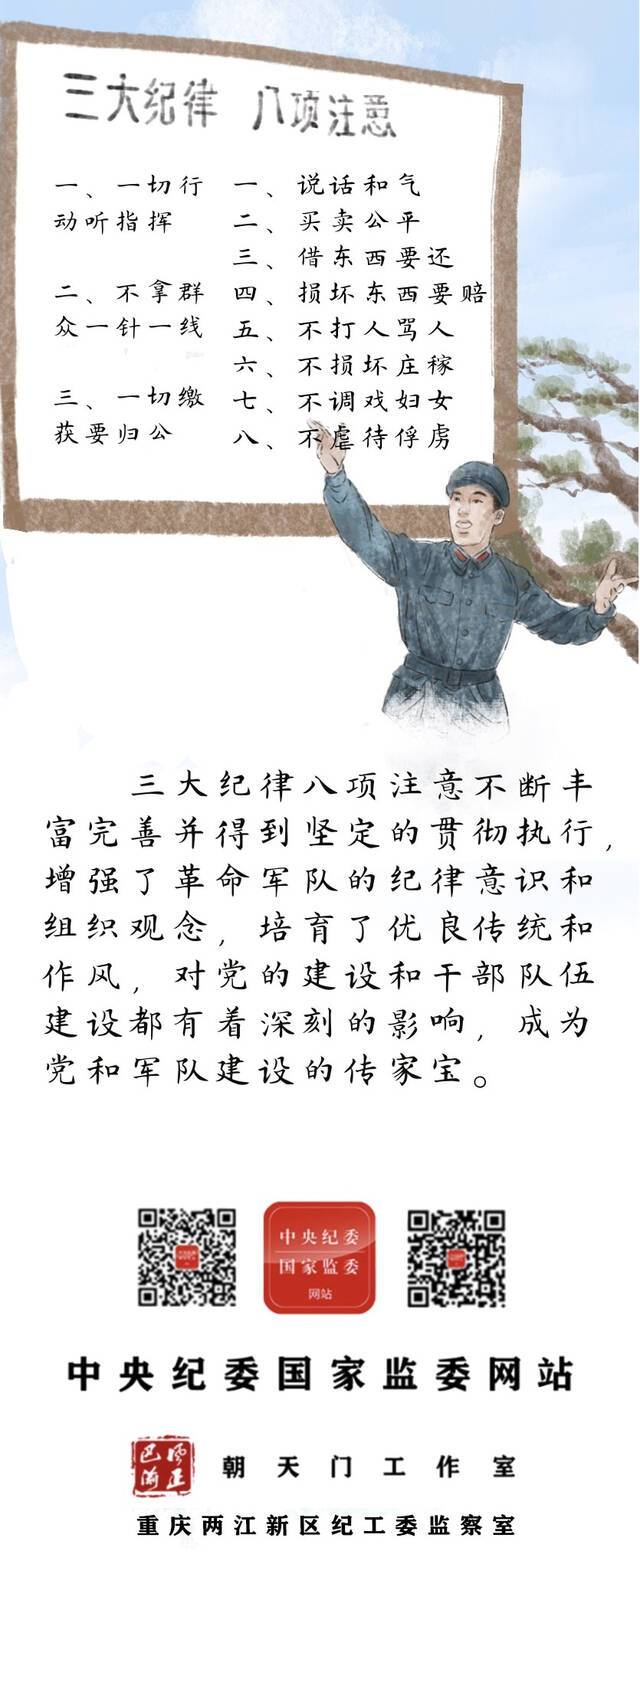 三大纪律 八项注意
一、一切行
动听指挥
二、不拿群
众一针一线
三、一切缴
获要归公
一、说话和气
二、买卖公平
三、借东西要还
四、损坏东西要赔
五、不打人骂人
六、不损坏庄稼
七、不调戏妇女
八、不虐待俘虏
三大纪律八项注意不断丰
富完善并得到坚定的贯彻执行，
增强了革命军队的纪律意识和
组织观念，培育了优良传统和
作风，对党的建设和干部队伍
建设都有着深刻的影响，成为
党和军队建设的传家宝。
中央纪委
国家监委
网站
中央纪委国家监委网站
风正
巴渝
朝天门工作室
重庆两江新区纪工委监察室